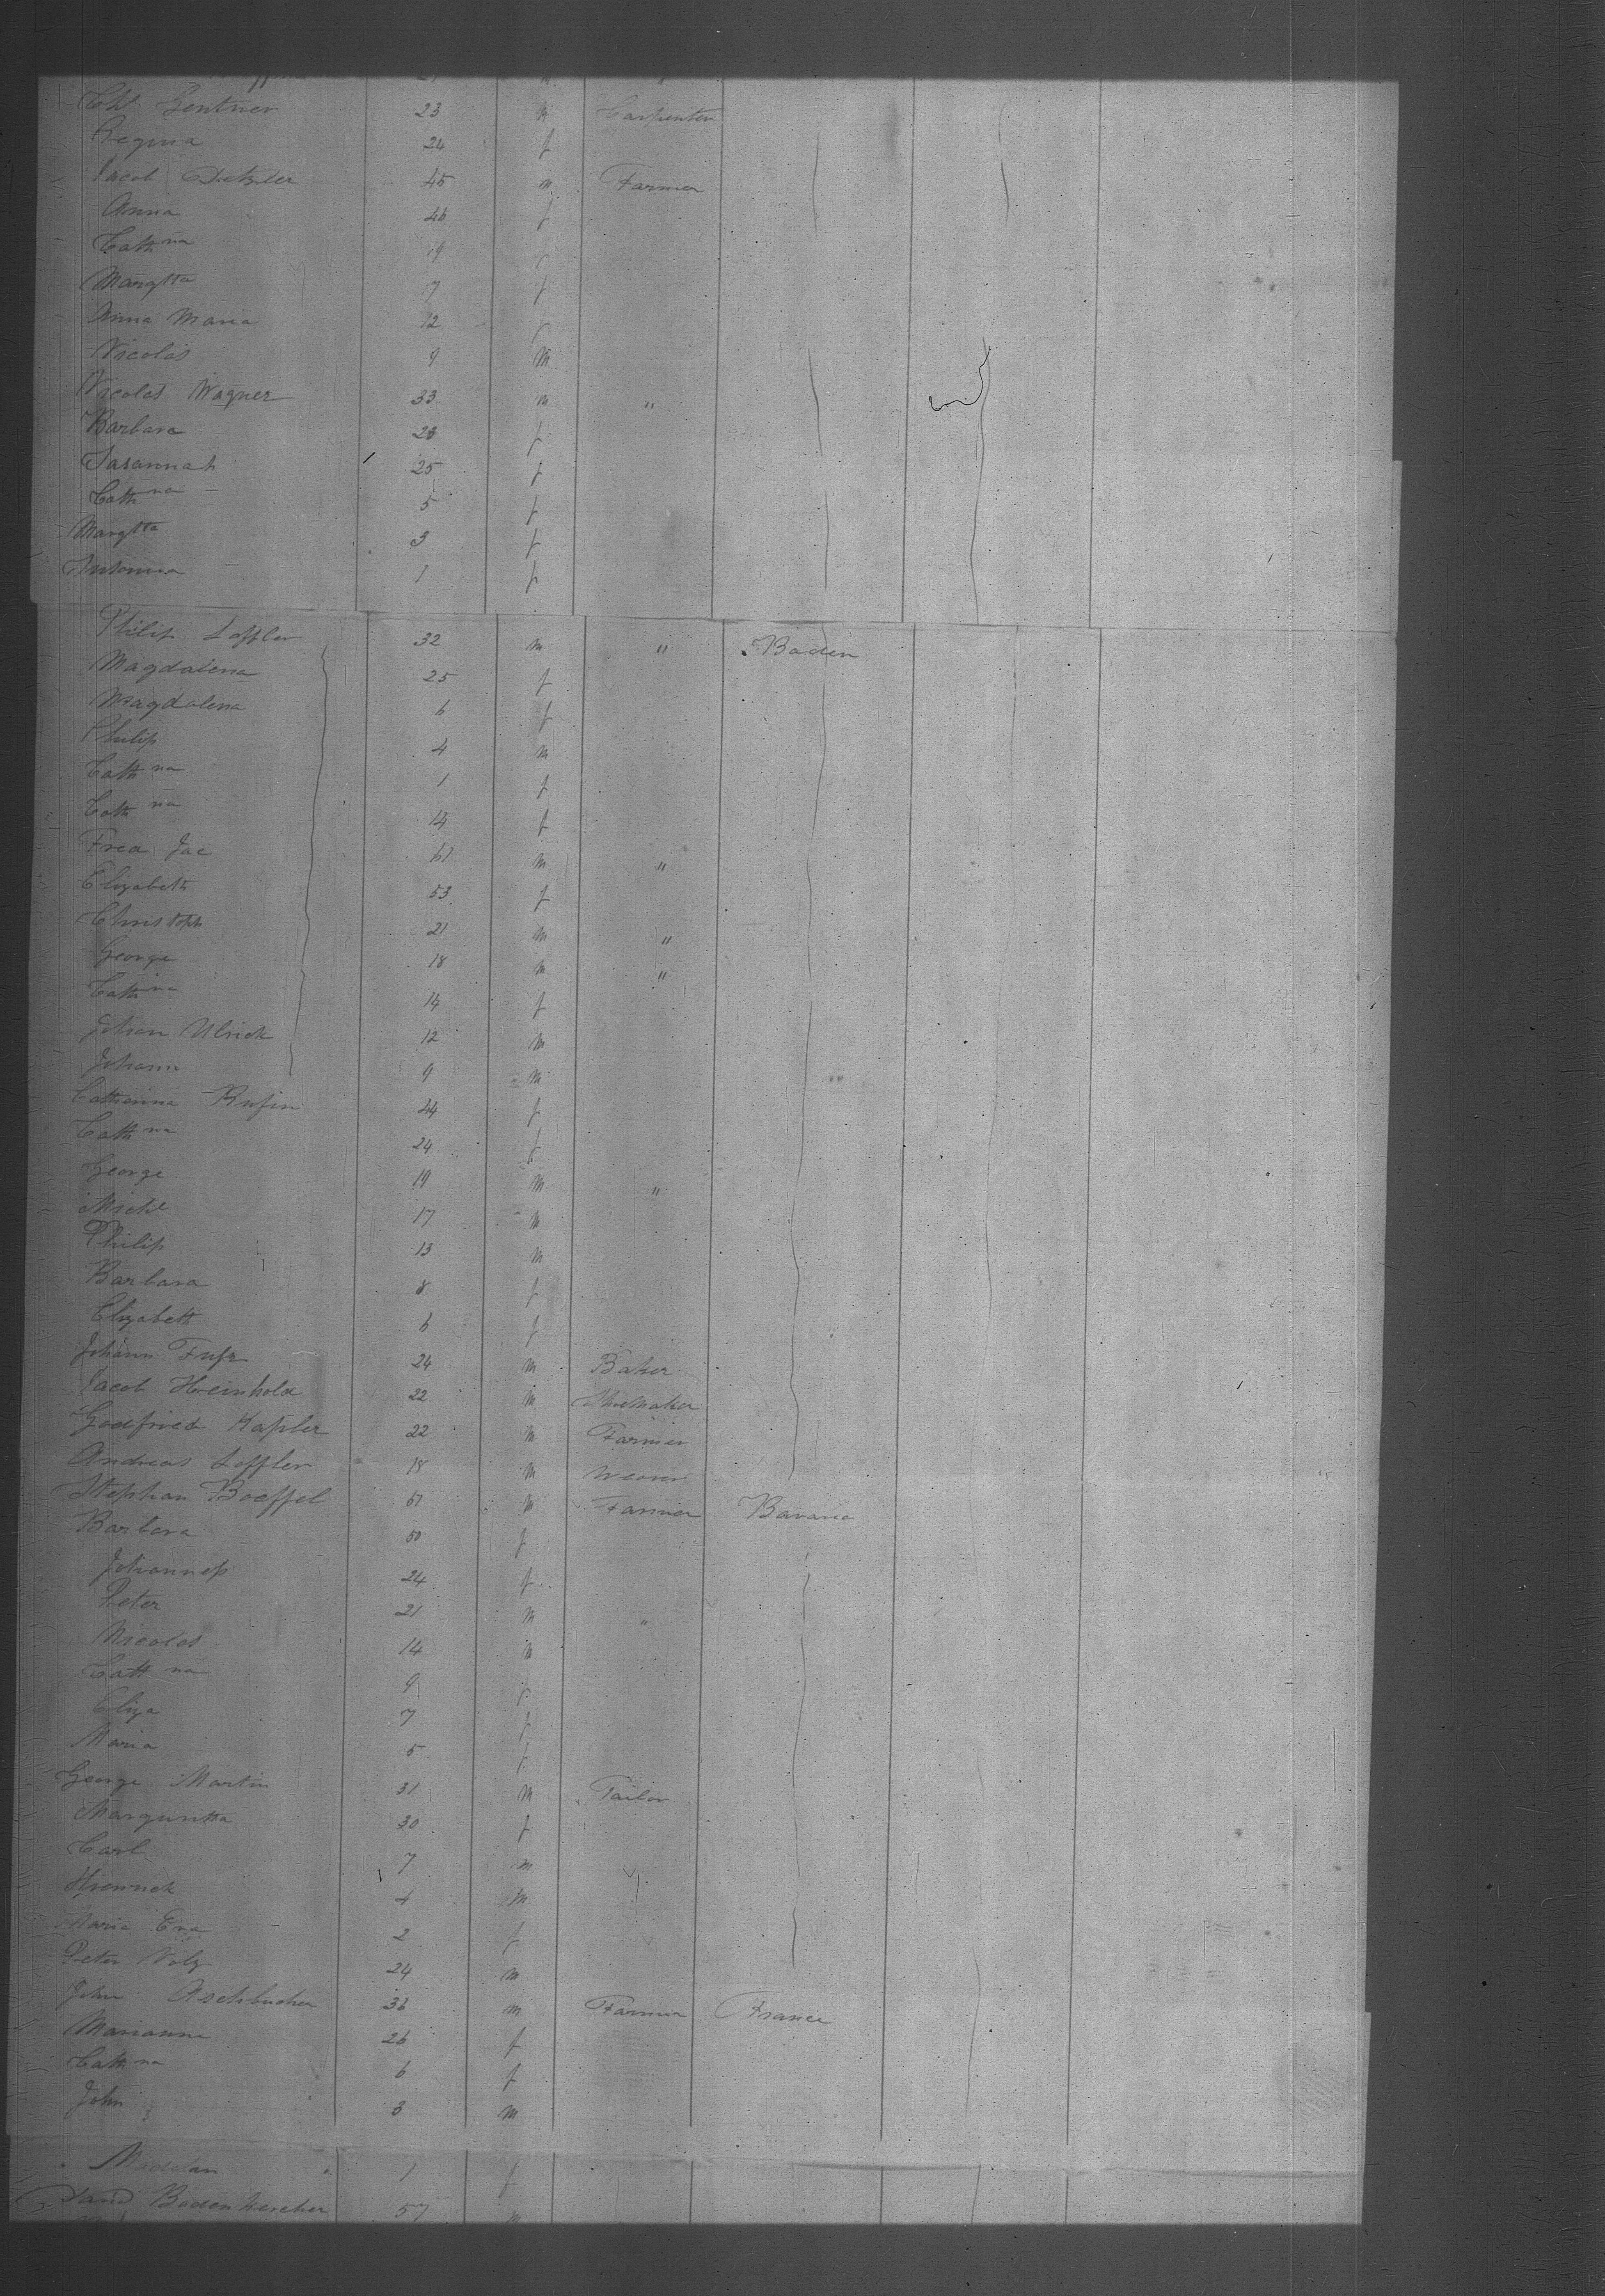 Gentner 23 Carpenter
Regina 24 f
Jacob 45 m Farmer
Anna 46 f
Cath na
Margtta f
Anna Maria 12
Nicolas 9 m
Nicolas Wagner 33 m "
Barbara f
Susannah 25 f
Cath na 5 f
Margtta 3 f
1 f
Philip Loffler 32 m " Baden
Magdalena 25 f
Magdalena 6 f
Philip 4 m
Cath na 1 f
Cath na 14 f
Fred Jac 61 m "
Elizabeth 53 f
Christoph 21 m "
George 18 m "
Cath na 14 f
Johan Ulrick 12 m
Johann 9 m
Catharina 44 f
Cath na 24 f
George 19 m "
Michl 17 m
Philip 13 m
Barbara 8 f
Elizabeth 6 f
Johann 24 m Baker
Jacob Heinhold 22 m Shoemaker
Godfried Kapler 22 m Farmer
Andreas Loffler 18 m Weaver
Stephan Boeffel 51 m Farmer Bavaria
Barbara 50 f
Johannes 24 f
Peter 21 m "
Nicolas 14 m
Cath na 9 f
Eliza 7 f
Maria 5 f
George Martin 31 m Tailor
Margaretta 30 f
Carl 7 m
4 m
Maria Eva 2 f
Peter Volz 24 m
John 36 m Farmer France
Marianna 26 f
Cath na 6 f
John 3 m
Madelan 1 f
57